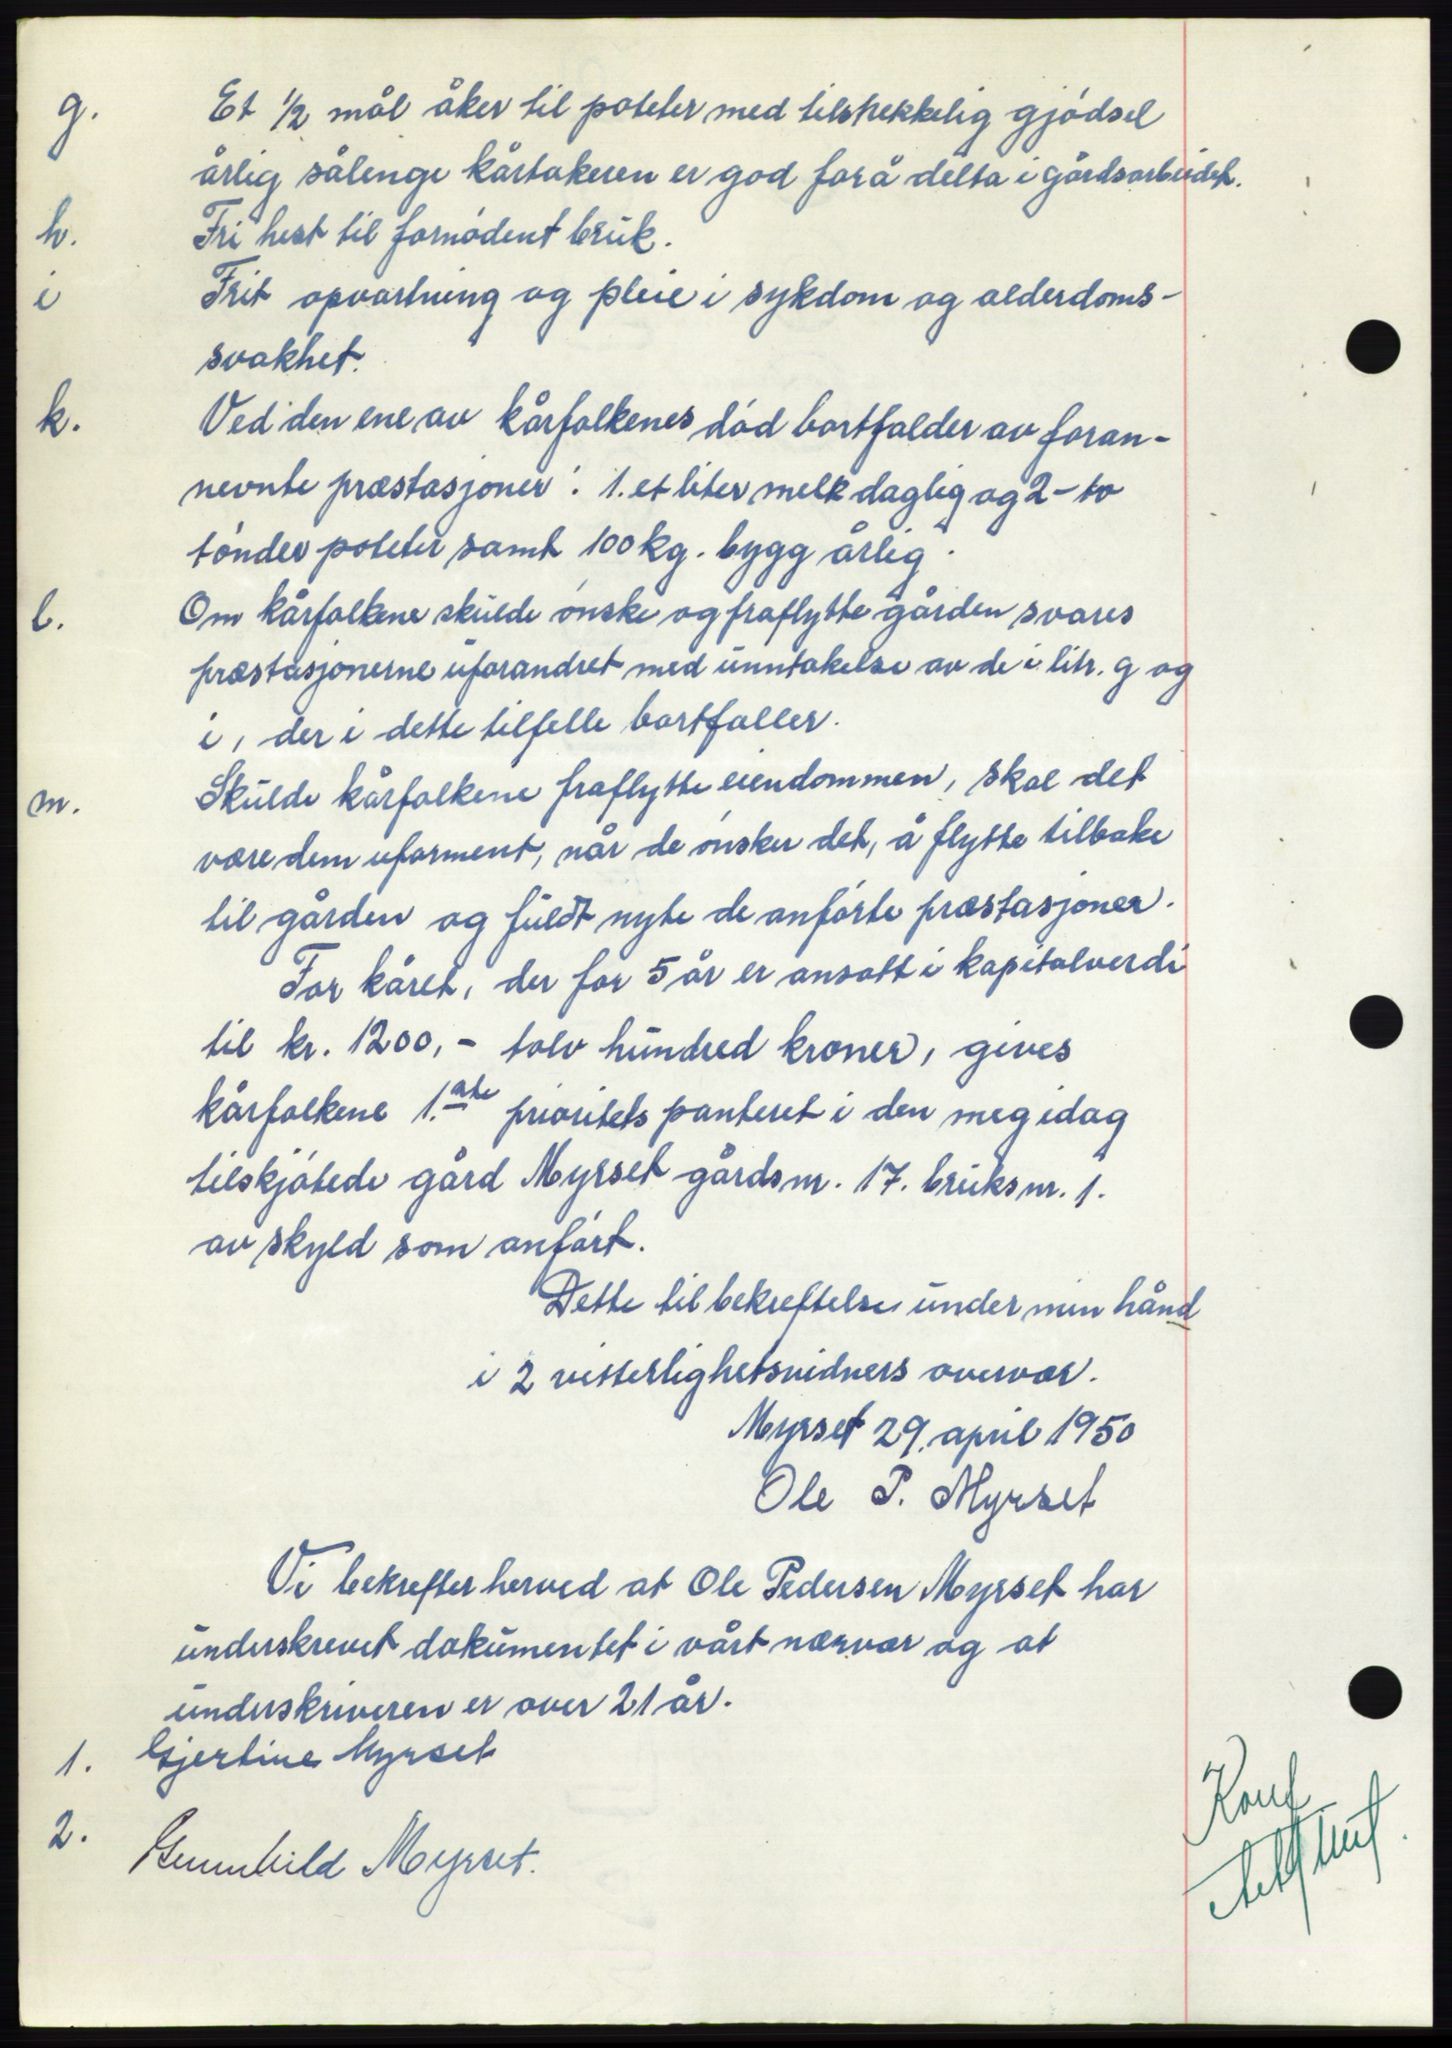 g. Et ½ mål åker til poteter med tilstrekkelig gjódsel
årlig sålenge kårtakeren er god forå delta i gårdsarbeidet.
h. Fri hest til fornódent bruk.
i Frit opvartning og pleie i sykdom og alderdoms-
svakhet.
k. Ved den ene av kårfolkenes död bortfalder av foran-
nevnte præstasjoner: 1. et liter melk daglig og 2-to
tónder poteter samt 100 kg. bygg årlig.
l. Om kårfolkene skulde ónske og fraflytte gården svares
præstasjonerne uforandret med unntakelse av de i litr. g og
i, der i dette tilfelle bortfaller.
m. Skulde kårfolkene fraflytte eiendommen, skal det
være dem uforment, når de ónsker det, å flytte tilbake
til gården og fuldt nyte de anförte præstasjoner.
For kåret, der for 5 år er ansatt i kapitalverdi
til kr. 1200,- tolv hundred kroner, gives
kårfolkene 1.ste prioritets panteret i den meg idag
tilskjótede gård Myrset gårdsnr. 17. bruksnr. 1.
av skyld som anfórt.
Dette til bekreftelse under min hånd
i 2 vitterlighetsvidners overvær.
Myrset 29. april 1950
Ole P. Myrset
Vi bekrefter herved at Ole Pedersen Myrset har
underskrevet dokumentet i vårt nærvær og at
underskriveren er over 21 år.
1. Gjertine Myrset
2. Gunnhild Myrset.
Konf